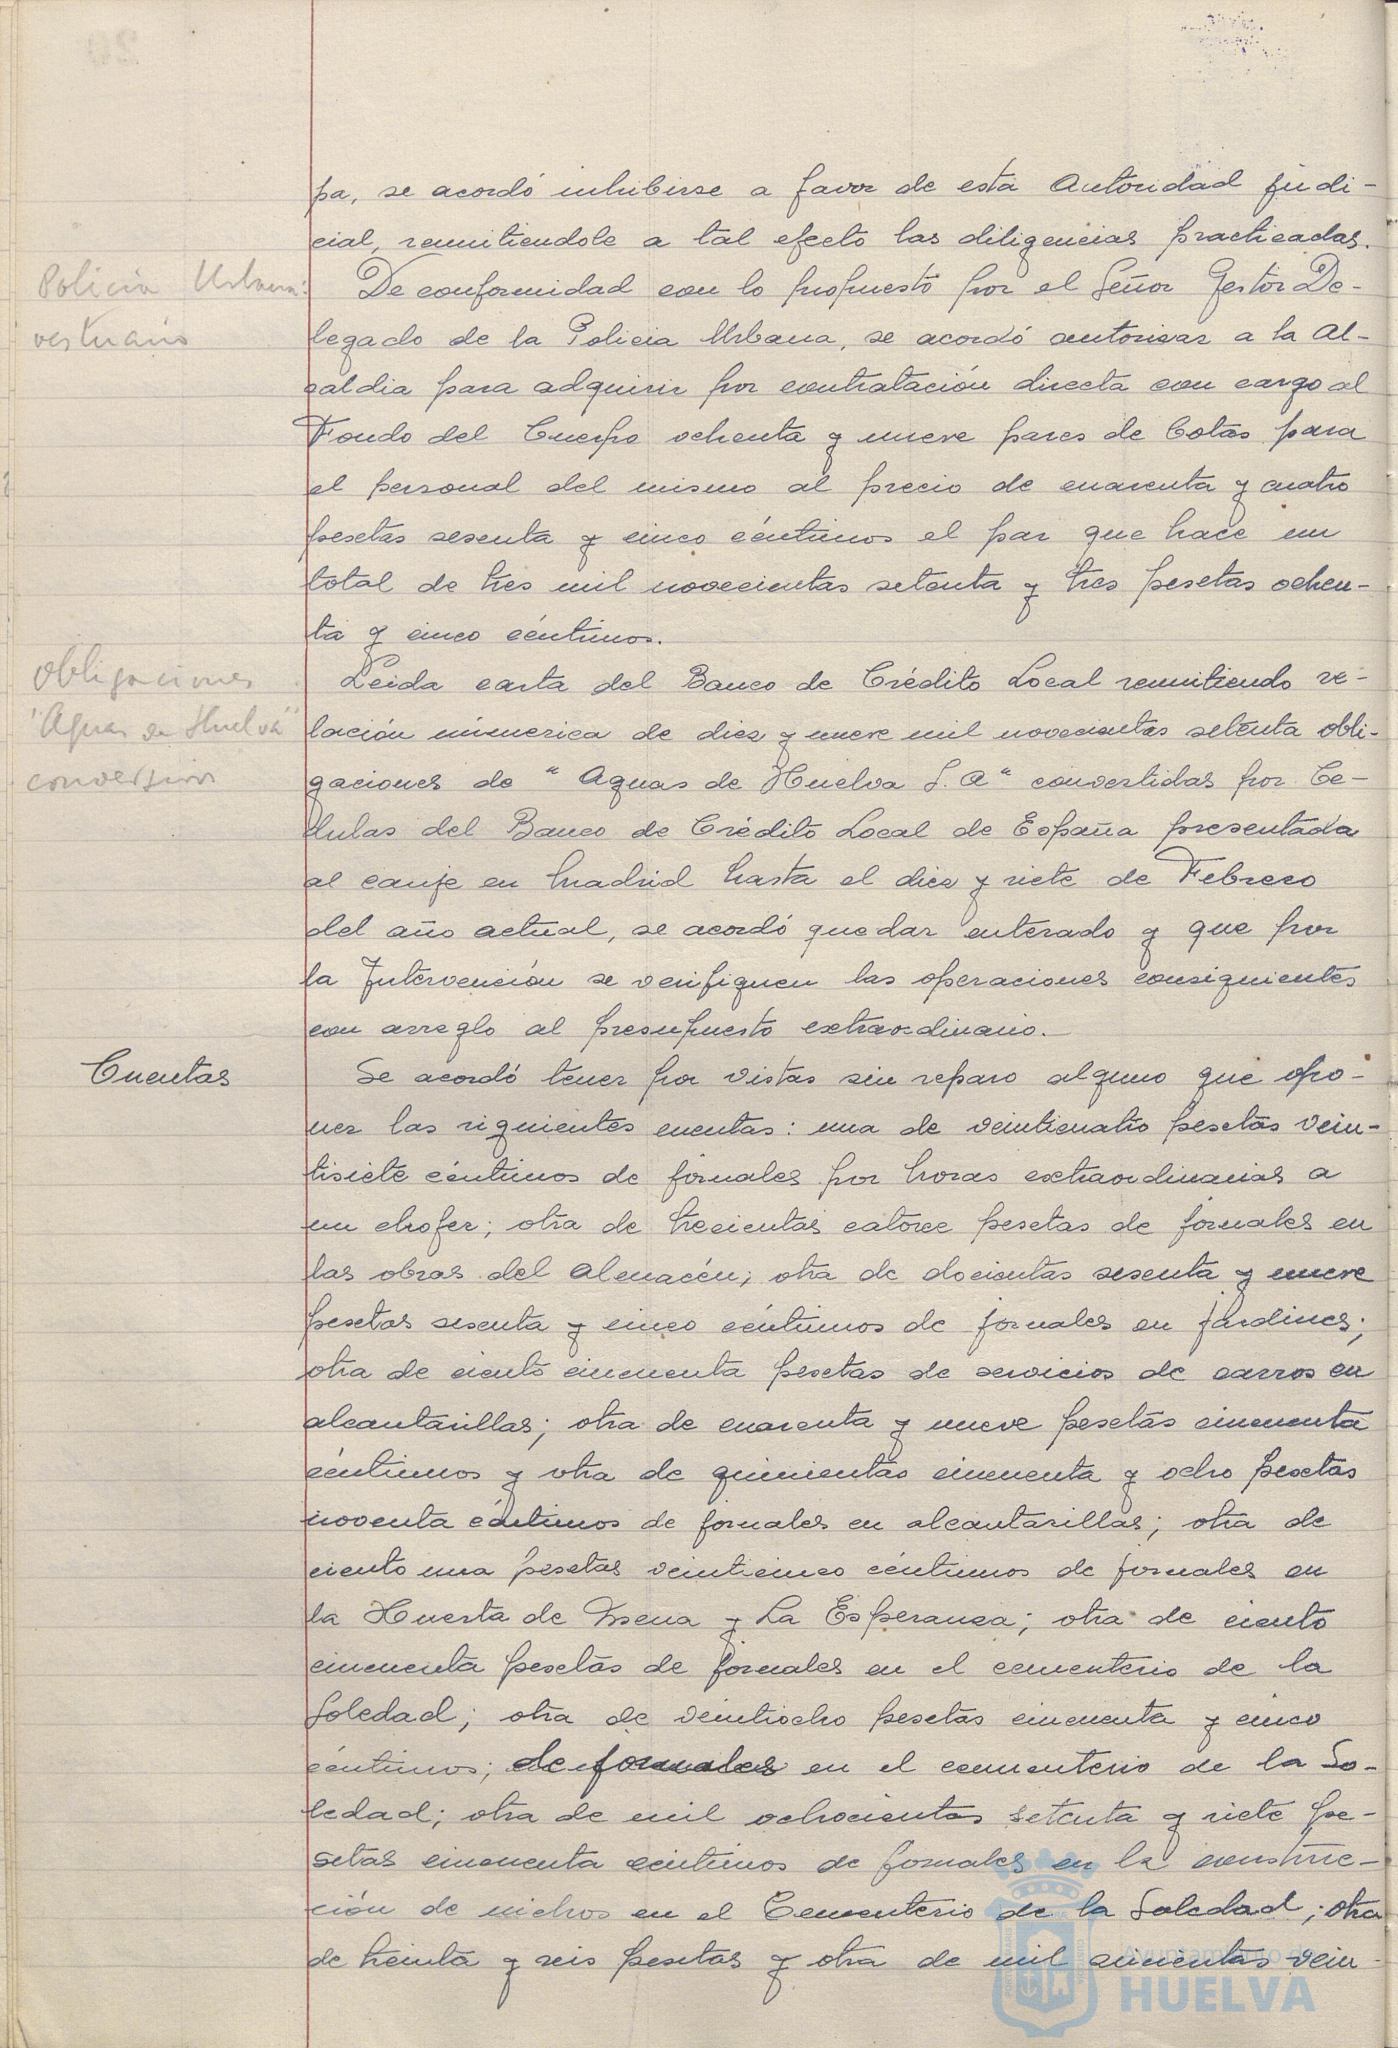 pa, se acordó inhibirse a favor de esta Autoridad judi-
cial, remitiendole a tal efecto las diligencias practicadas.
Policia Urbana:
vestuario
De conformidad con lo propuesto por el Señor Gestor De-
legado de la Policia Urbana, se acordó autorizar a la Al-
caldia para adquirir por contratación directa con cargo al
Fondo del Cuerpo ochenta y nueve pares de botas para
el personal del mismo al precio de cuarenta y cuatro
pesetas sesenta y cinco céntimos el par que hace un
total de tres mil novecientas setenta y tres pesetas ochen-
ta y cinco céntimos.
Obligaciones
"Aguas de Huelva"
conversion
Leida carta del Banco de Crédito Local remitiendo re-
lación númerica de diez y nueve mil novecientas setenta obli-
gaciones de "Aguas de Huelva S.A" convertidas por Ce-
dulas del Banco de Crédito Local de España presentada
al canje en Madrid hasta el diez y siete de Febrero
del año actual, se acordó quedar enterado y que por
la Intervención se verifiquen las operaciones consiguientes
con arreglo al presupuesto extraordinario.-
Cuentas
Se acordó tener por vistas sin reparo alguno que opo-
ner las siguientes cuentas: una de veinticuatro pesetas vein-
tisiete céntimos de jornales por horas extraordinarias a
un chofer; otra de trecientas catorce pesetas de jornales en
las obras del Almacén; otra de docientas sesenta y nueve
pesetas sesenta y cinco céntimos de jornales en jardines;
otra de ciento cincuenta pesetas de servicios de carros en
alcantarillas; otra de cuarenta y nueve pesetas cincuenta
céntimos y otra de quinientas cincuenta y ocho pesetas
noventa céntimos de jornales en alcantarillas; otra de
ciento una pesetas veinticinco céntimos de jornales en
la Huerta de Mena y La Esperanza; otra de ciento
cincuenta pesetas de jornales en el cementerio de la
Soledad; otra de veintiocho pesetas cincuenta y cinco
céntimos; de jornales en el cementerio de la So-
ledad; otra de mil ochocientas setenta y siete pe-
setas cincuenta centimos de jornales en la construc-
ción de nichos en el Cementerio de la Soledad; otra
de treinta y seis pesetas y otra de mil quinientas vein-
Ayuntamiento de
HUELVA